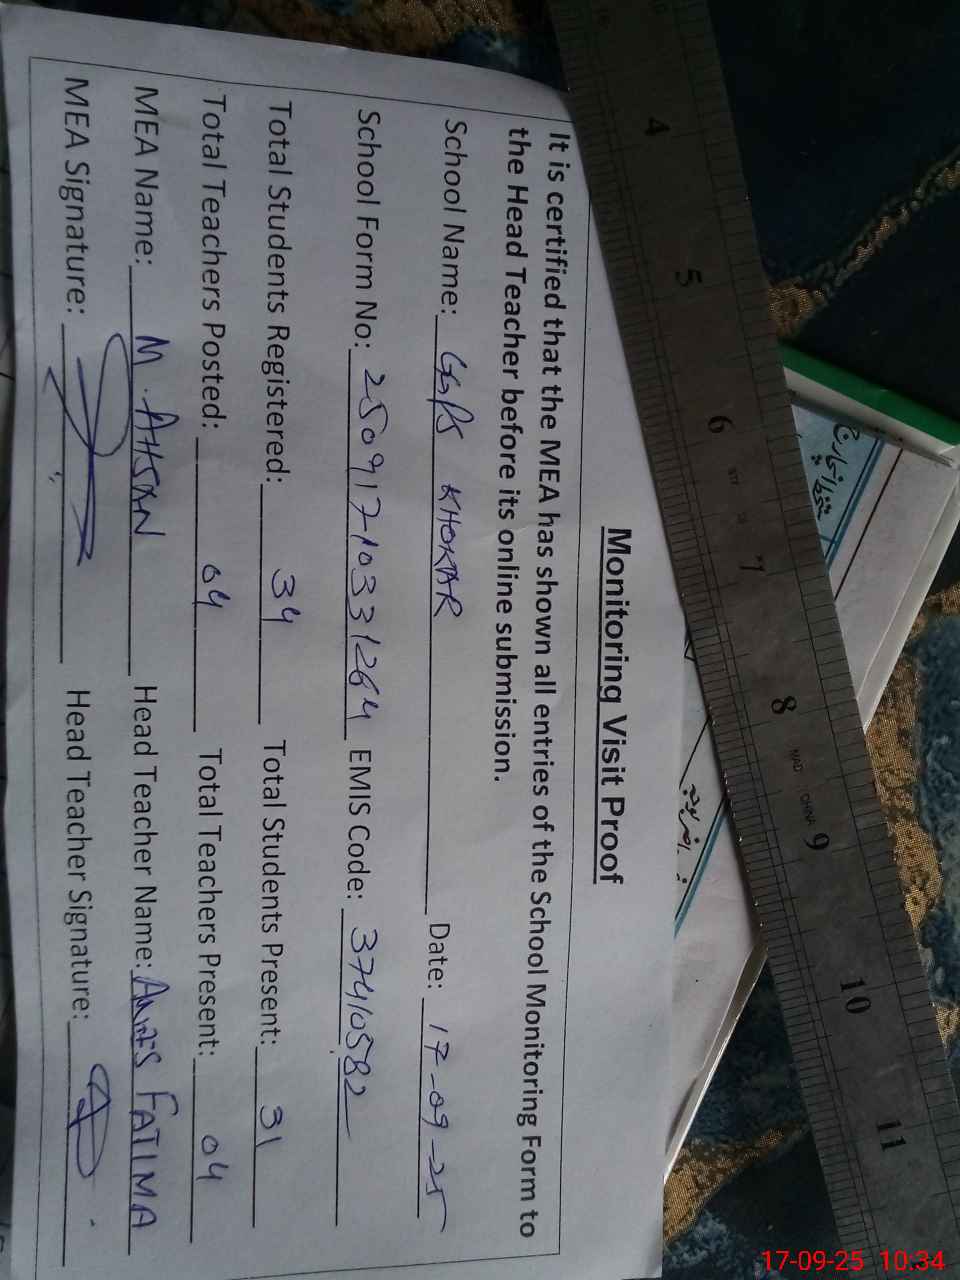 Monitoring Visit Proof
It is certified that the MEA has shown all entries of the School Monitoring Form to
the Head Teacher before its online submission.
School Name: GGPS KHOKAR Date: 17-09-25
School Form No: 25091710331264 EMIS Code: 37410582
Total Students Registered: 34 Total Students Present: 31
Total Teachers Posted: 04 Total Teachers Present: 04
MEA Name: M. AHSAN Head Teacher Name: FATIMA
MEA Signature: Head Teacher Signature:
4 5 6 7 8 9 10 11
17-09-25 10:34